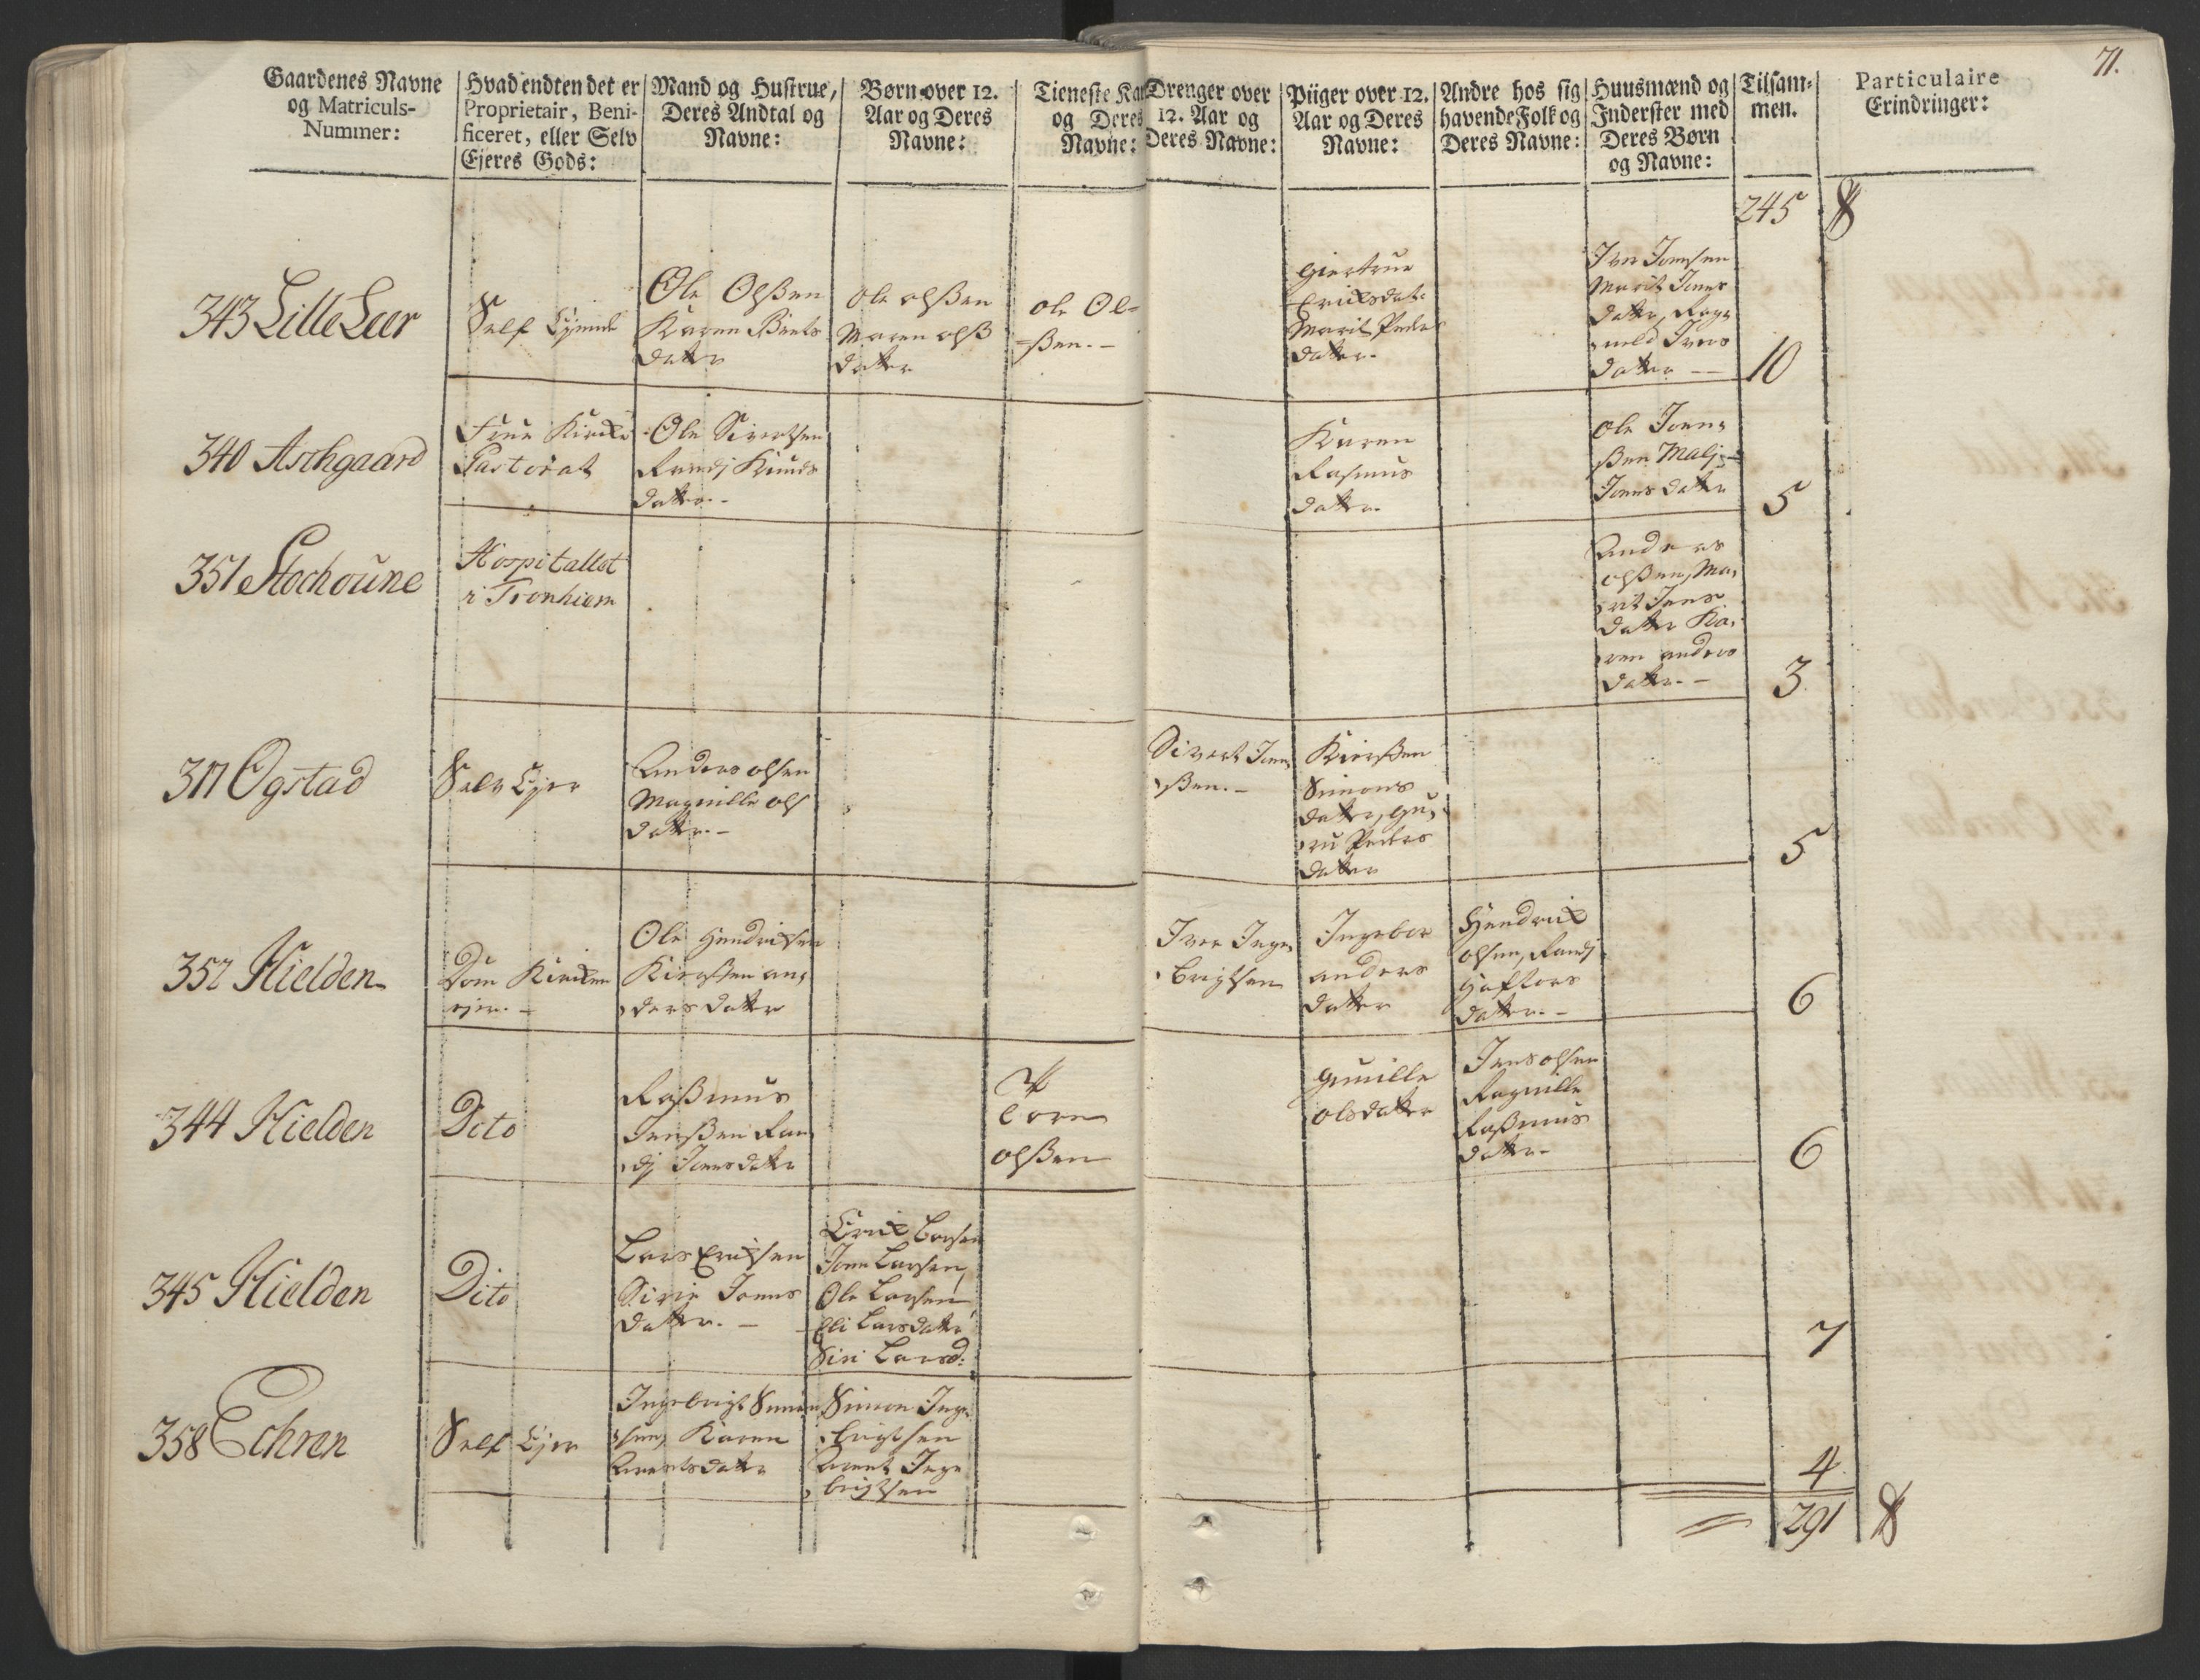 71.
Gaardenes Navne
og Matriculs-
Nummer:
Hvad endten det er
Proprietair, Beni-
ficeret, eller Selv
Ejeres Gods:
Mand og Hustrue,
Deres Andtal og
Navne:
Børn over 12.
Aar og Deres
Navne:
Tieneste Kar
og Deres
Navne:
Drenger over
12. Aar og
Deres Navne:
Piiger over 12.
Aar og Deres
Navne:
Andre hos sig
havende Folk og
Deres Navne:
Huusmænd og
Inderster med
Deres Børn
og Navne:
Tilsam-
men.
Particulaire
Erindringer:
245
343 Lille Leer
Self Ejende
Ole Olßen
Karen Bents
datter
Ole olßen
Maren olß
datter
ole Ol=
=ßen.-
Giertrue
Ericksdat:
Marit Peders
datter.
Iver Jonsen
Marit Jons
datter, Rag=
nild Ivers
datter --
10
340 Aschgaard
Frue Kircke
Pastorat
Ole Sivertsen
Randj Knuds
datter.-
Karen
Rasmus
datter.
Ole Joen=
ßen Malj=
Jonsdatter
5
351 Stochoune
Hospitallet
i Tronhiem
Anders
olßen, Ma,
rit Jens
datter Ka,
ren anders
datter.-
3
317 Ogstad
Selv Ejer
Anders olsen
Magnille ols
datter.-
Sivert Jons
ßen.-
Kierßen
Simons
datter, Gu,
ru Peders
datter
5
352 Hielden
Dom Kircken
ejer.-
Ole Hendrichsen
Kierßen an,
ders datter
Iver Inge,
brigtsen
Ingebor
anders
datter
Hendrich
olsen, Randj
Haftors
datter.-
6
344 Hielden
Dito
Raßmus
Jenßen Ran
dj Jonsdatter
Tore
olßen
Gunille
olsdatter
Jens olsen
Ragnille
Raßmus
datter-
6
345 Hielden
Dito
Lars Ericksen
Sirie Jonns
datter.-
Erich Larsen
Jonn Larsen,
Ole Larsen
Eli Larsdatter
Siri Larsd:
7
358 Echren
Self Ejer
Ingebrigt Simon
sen, Karen
Arentsdatter
Simon Inge
brigtsen
Arent Inge
brigtsen
4
291